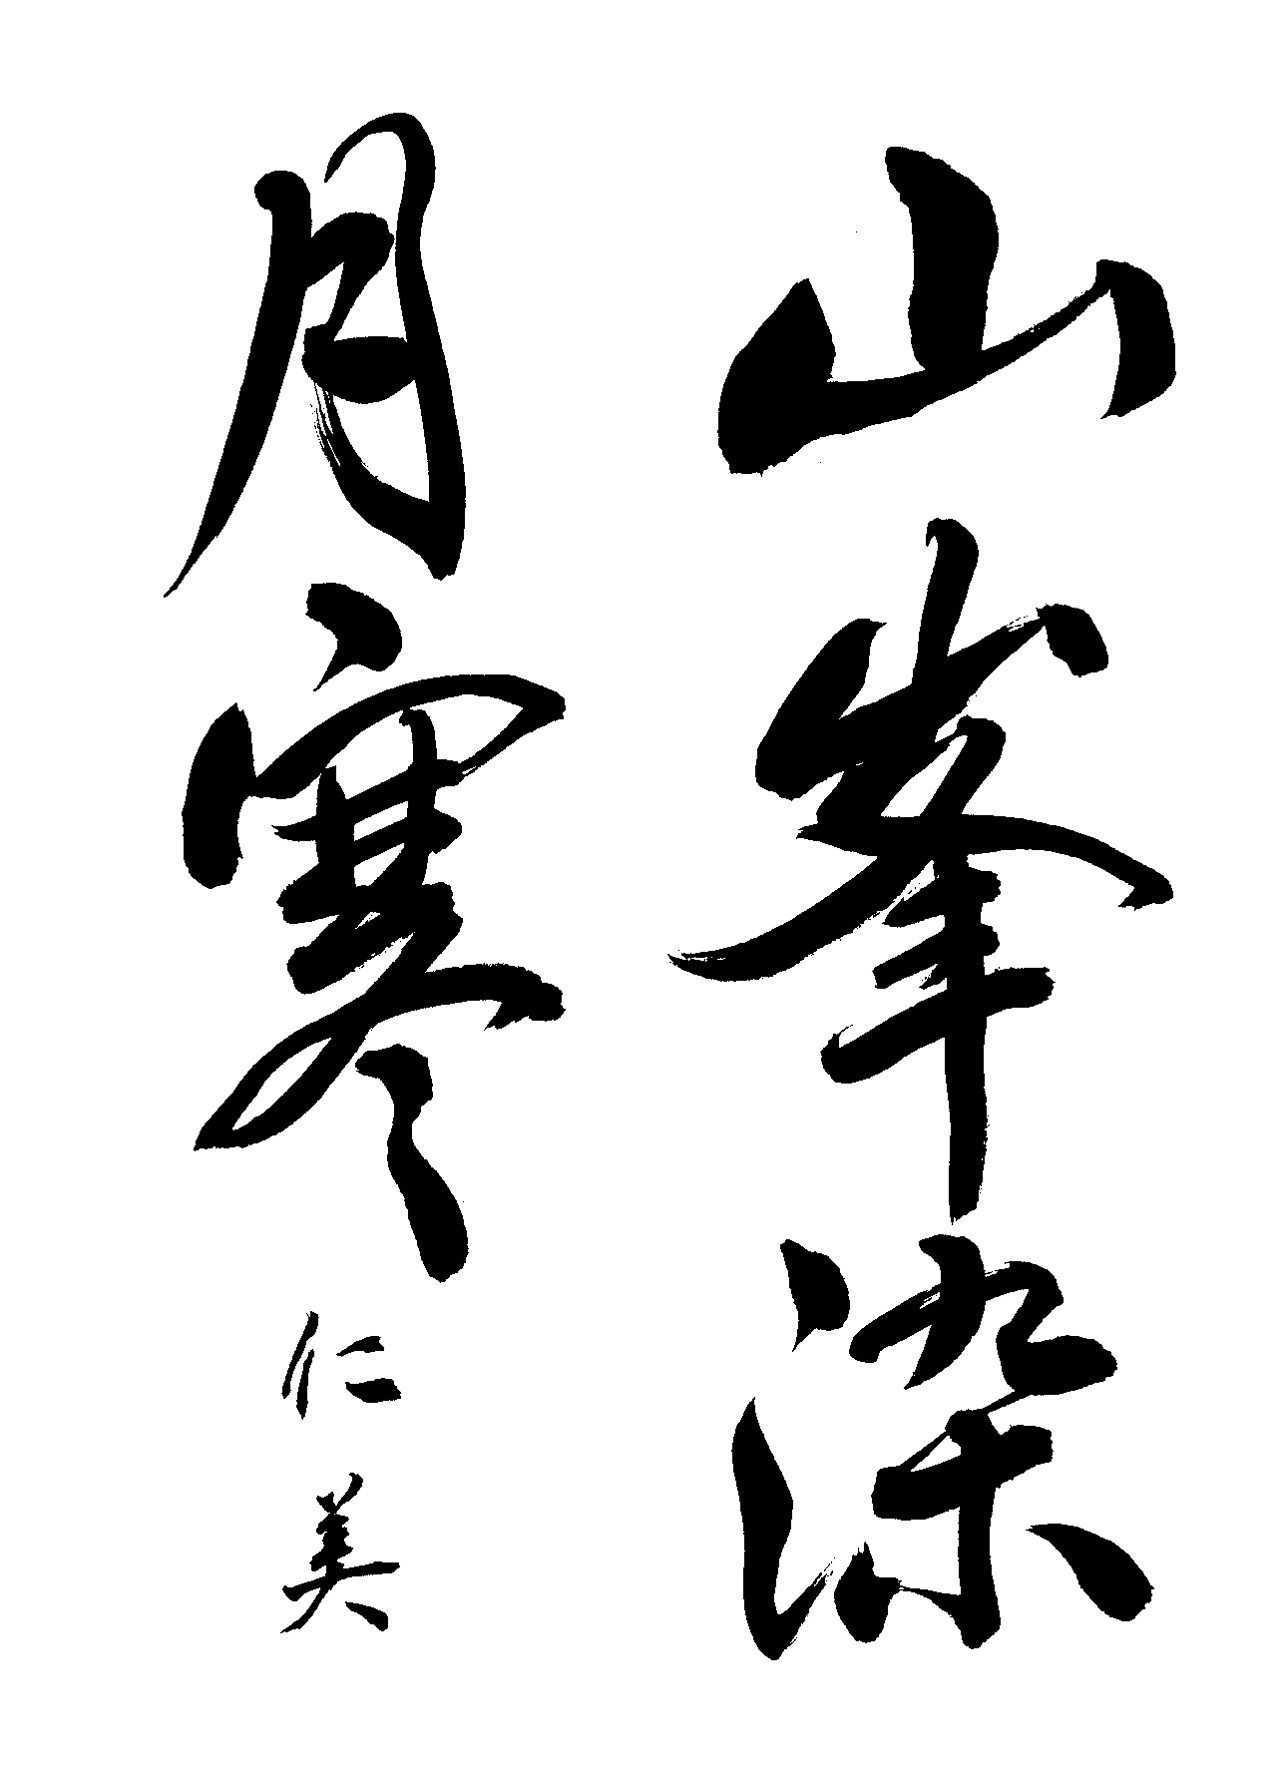 山峯染
月寒
仁美